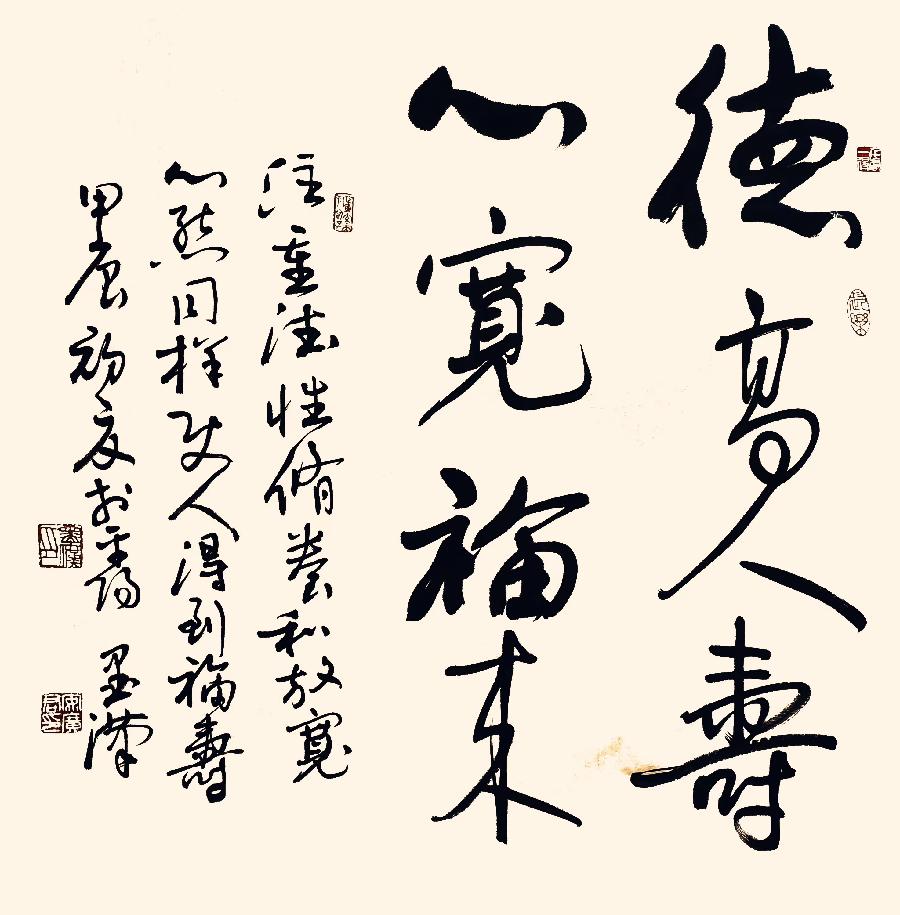 德高人壽
心寬福來
注重德性脩养和放寬
心態同样使人得到福壽
甲辰初夏於平陽 墨漢